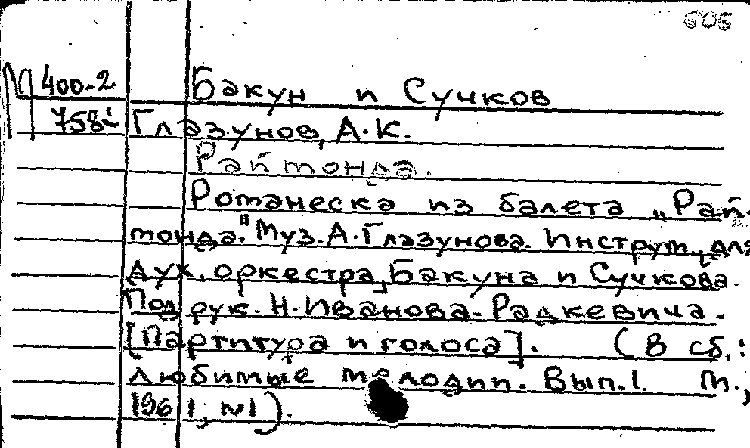 606
М 400-2 Бакун и Сучков
758 Глазунов, А.К.
Раймонда.
Романеска из балета „Рай-
монда." Муз. А. Глазунова. Инструм. для
дух. оркестра, Бакуна и Сучкова.
Под рук. Н. Иванова-Радкевича.
[Партитура и голоса]. (В сб.:
Любимые мелодии. Вып. 1. М.,
1961, №1).